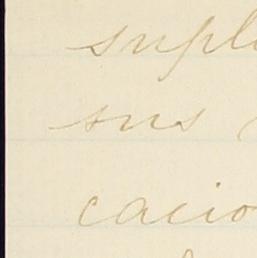 supl
sus
cacio